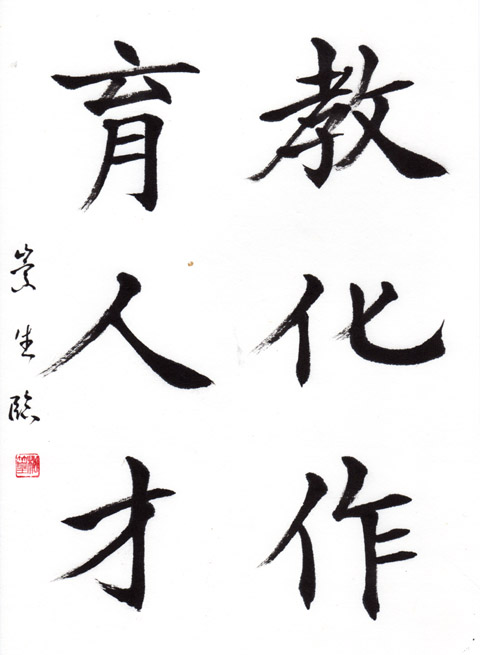 教化作
育人才
崇生臨